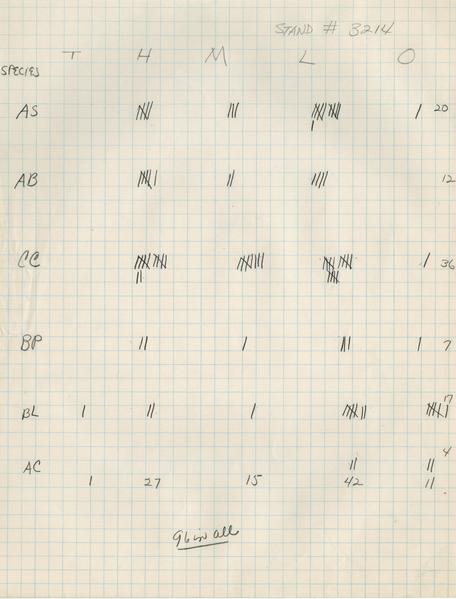 STAND # 3214
T H M L O
SPECIES
AS 20
AB 12
CC 36
BP 7
BL 17
AC 4
1 27 15 42 11
96 in all